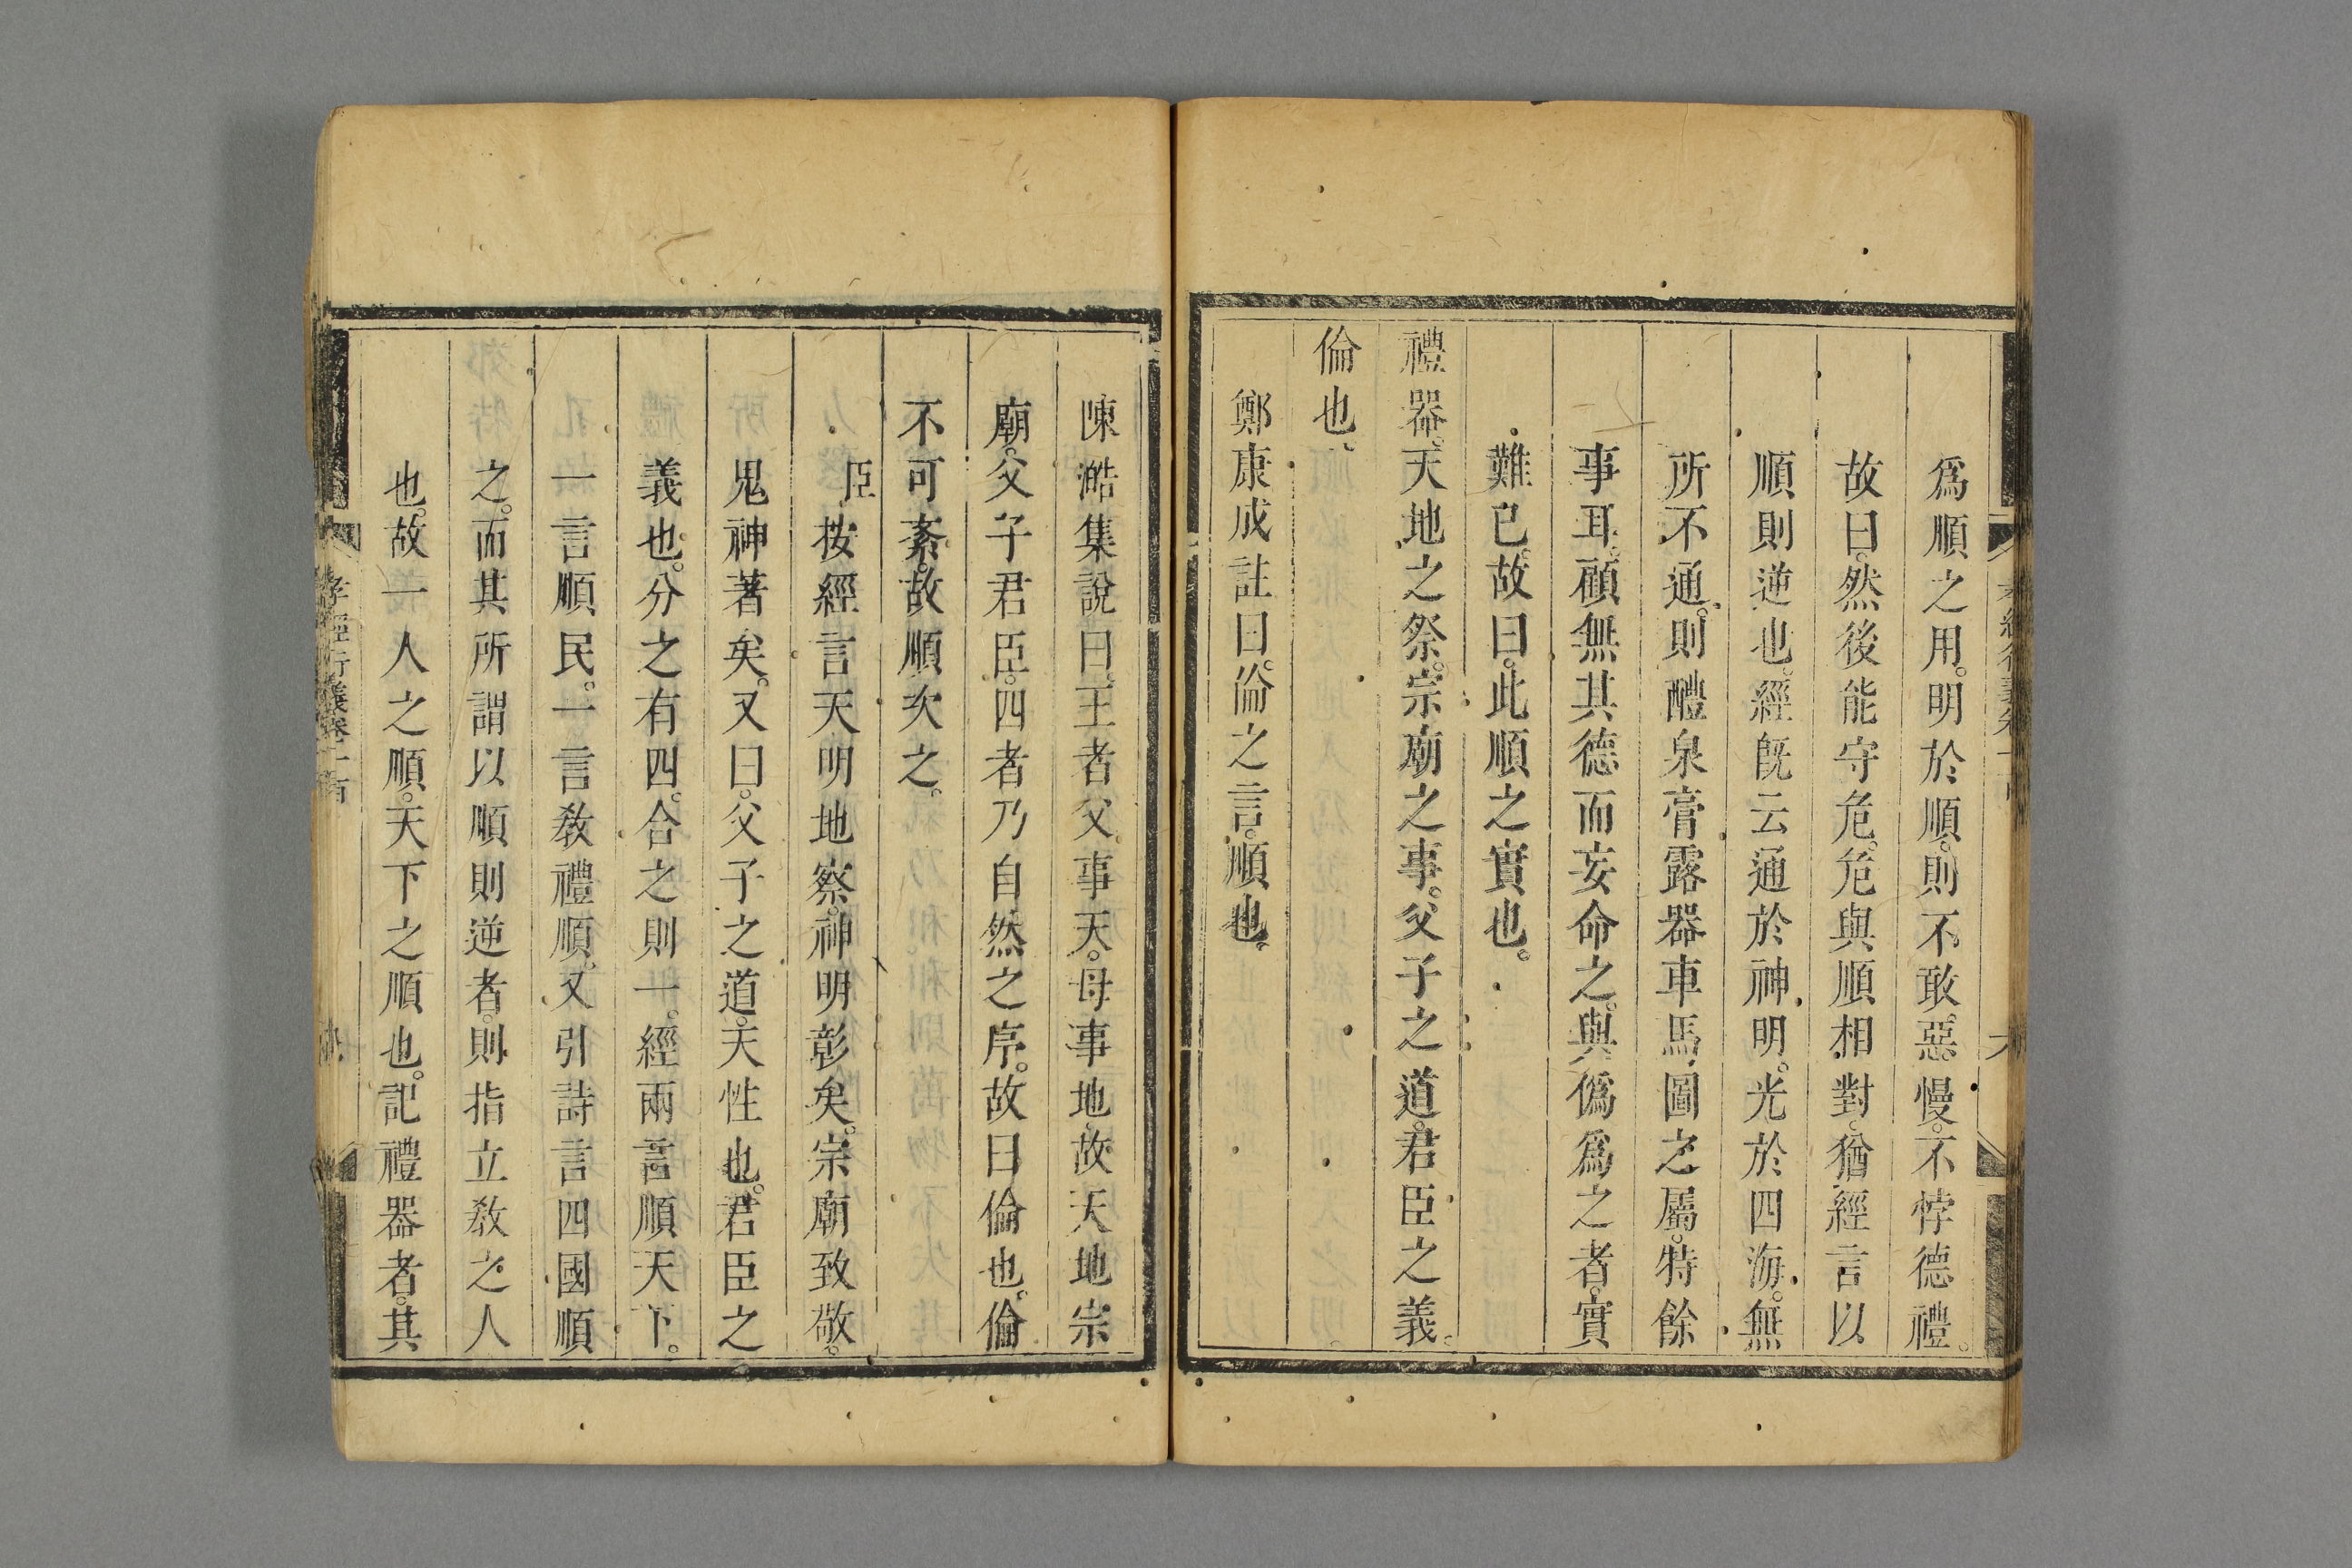 爲順之用。明於順。則不敢惡慢。不悖德禮。
故曰。然後能守危。危與順相對。猶經言以
順則逆也。經旣云通於神明。光於四海。無
所不通。則醴泉膏露器車馬圖之屬。特餘
事耳。顧無其德而妄命之。與僞爲之者。實
難已。故曰。此順之實也。
禮器。天地之祭。宗廟之事。父子之道。君臣之義。
倫也。
鄭康成註曰。倫之言。順也。
陳澔集說曰。王者父事天。母事地。故天地宗
廟。父子君臣。四者乃自然之序。故曰倫也。倫
不可紊。故順次之。
臣按經言天明地察。神明彰矣。宗廟致敬。
鬼神著矣。又曰。父子之道。天性也。君臣之
義也。分之有四。合之則一。經兩言順天下。
一言順民。一言敎禮順。又引詩言四國順
之。而其所謂以順則逆者。則指立敎之人
也。故一人之順。天下之順也。記禮器者。其
孝經衍義卷十